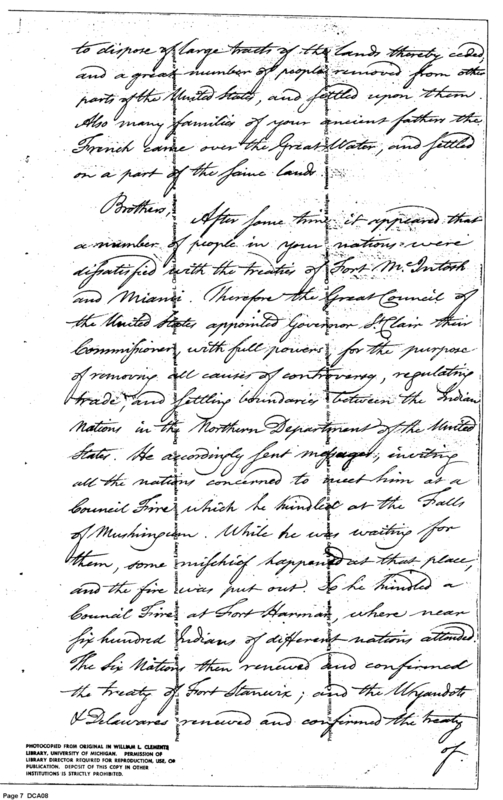 to dispose of large tracts of the lands thereby ceded,
and a great number of people removed from other
parts of the United States, and settled upon them
Also many families of your ancient fathers the
French came over the Great Water, and settled
on a part of the same lands.
Brothers,
After some time it appeared that
a number of people in your nations were
dissatisfied with the treaties of Fort McIntosh
and Miami. Therefore the Great Council of
the United States appointed Governor St Clair their
Commissioner, with full powers, for the purpose
of removing all causes of controversy, regulating
trade, and settling boundaries between the Indian
Nations in the Northern Department of the United
States. He accordingly sent messages, inviting
all the nations concerned to meet him at a
Council Fire which he kindled at the Falls
of Mushingum. While he was waiting for
them, some mischief happened at that place,
and the fire was put out. So he kindled a
Council Fire at Fort Harmar, where near
six hundred Indians of different nations attended.
The Six Nations then renewed and confirmed
the treaty of Fort Stanwix; and the Wyandots
& Delawares renewed and confirmed the treaty
of
PHOTOCOPIED FROM ORIGINAL IN WILLIAM L. CLEMENTS
LIBRARY, UNIVERSITY OF MICHIGAN. PERMISSION OF
LIBRARY DIRECTOR REQUIRED FOR REPRODUCTION, USE, OR
PUBLICATION. DEPOSIT OF THIS COPY IN OTHER
INSTITUTIONS IS STRICTLY PROHIBITED.
Page 7 DCA08